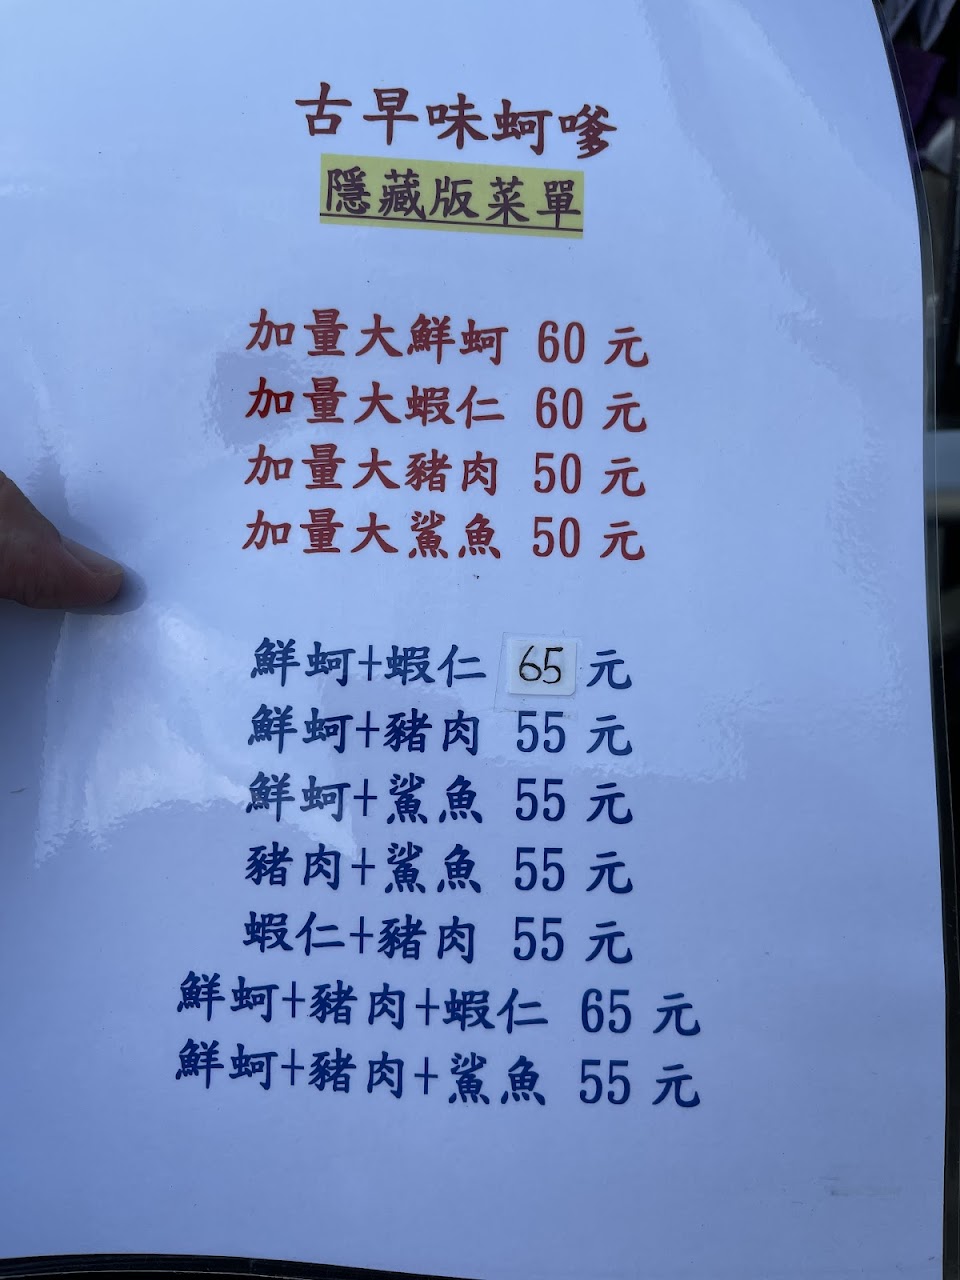 古早味蚵嗲
隱藏版菜單
加量大鮮蚵 60 元
加量大蝦仁 60 元
加量大豬肉 50 元
加量大鯊魚 50 元
鮮蚵+蝦仁 65 元
鮮蚵+豬肉 55 元
鮮蚵+鯊魚 55 元
豬肉+鯊魚 55 元
蝦仁+豬肉 55 元
鮮蚵+豬肉+蝦仁 65 元
鮮蚵+豬肉+鯊魚 55 元